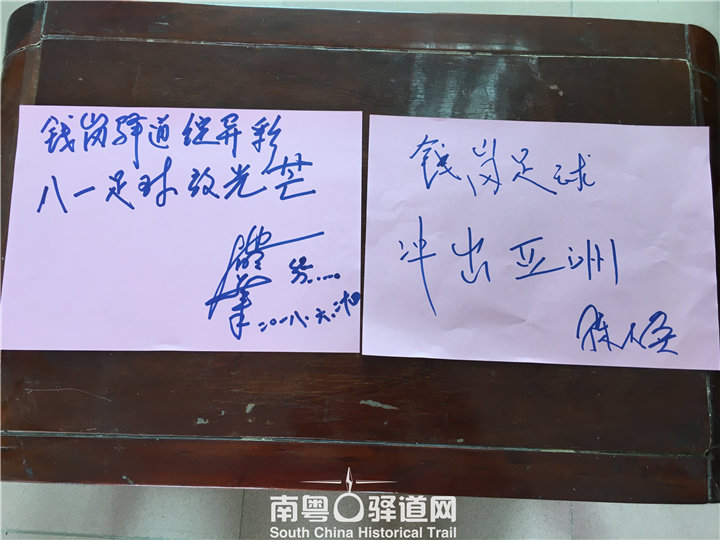 钱岗驿道绽异彩
八一足球放光芒
二〇一八.六.
钱岗足球
冲出亚洲
南粤古驿道网
South China Historical Trail